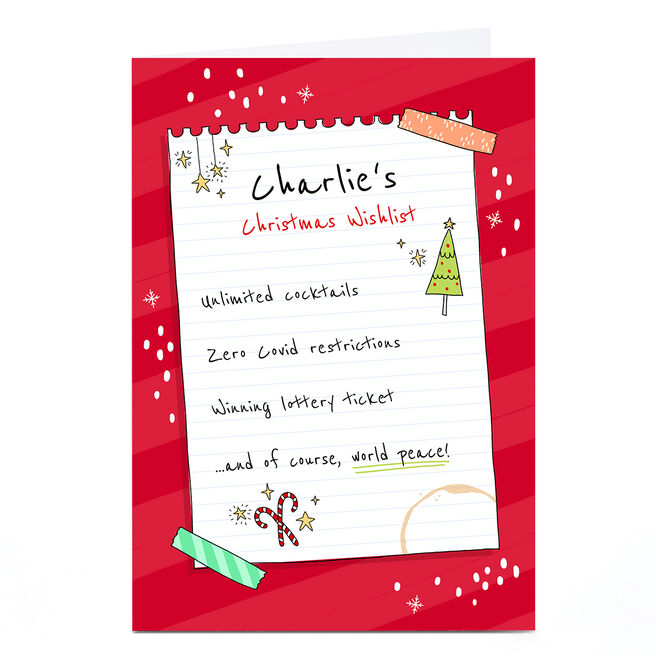 Charlie's
Christmas Wishlist
Unlimited cocktails
Zero Covid restrictions
Winning lottery ticket
...and of course, world peace!